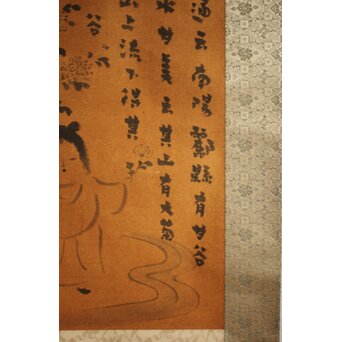 通云南陽酈縣有甘谷
水甘美云其上有大菊
山上流下得其
谷